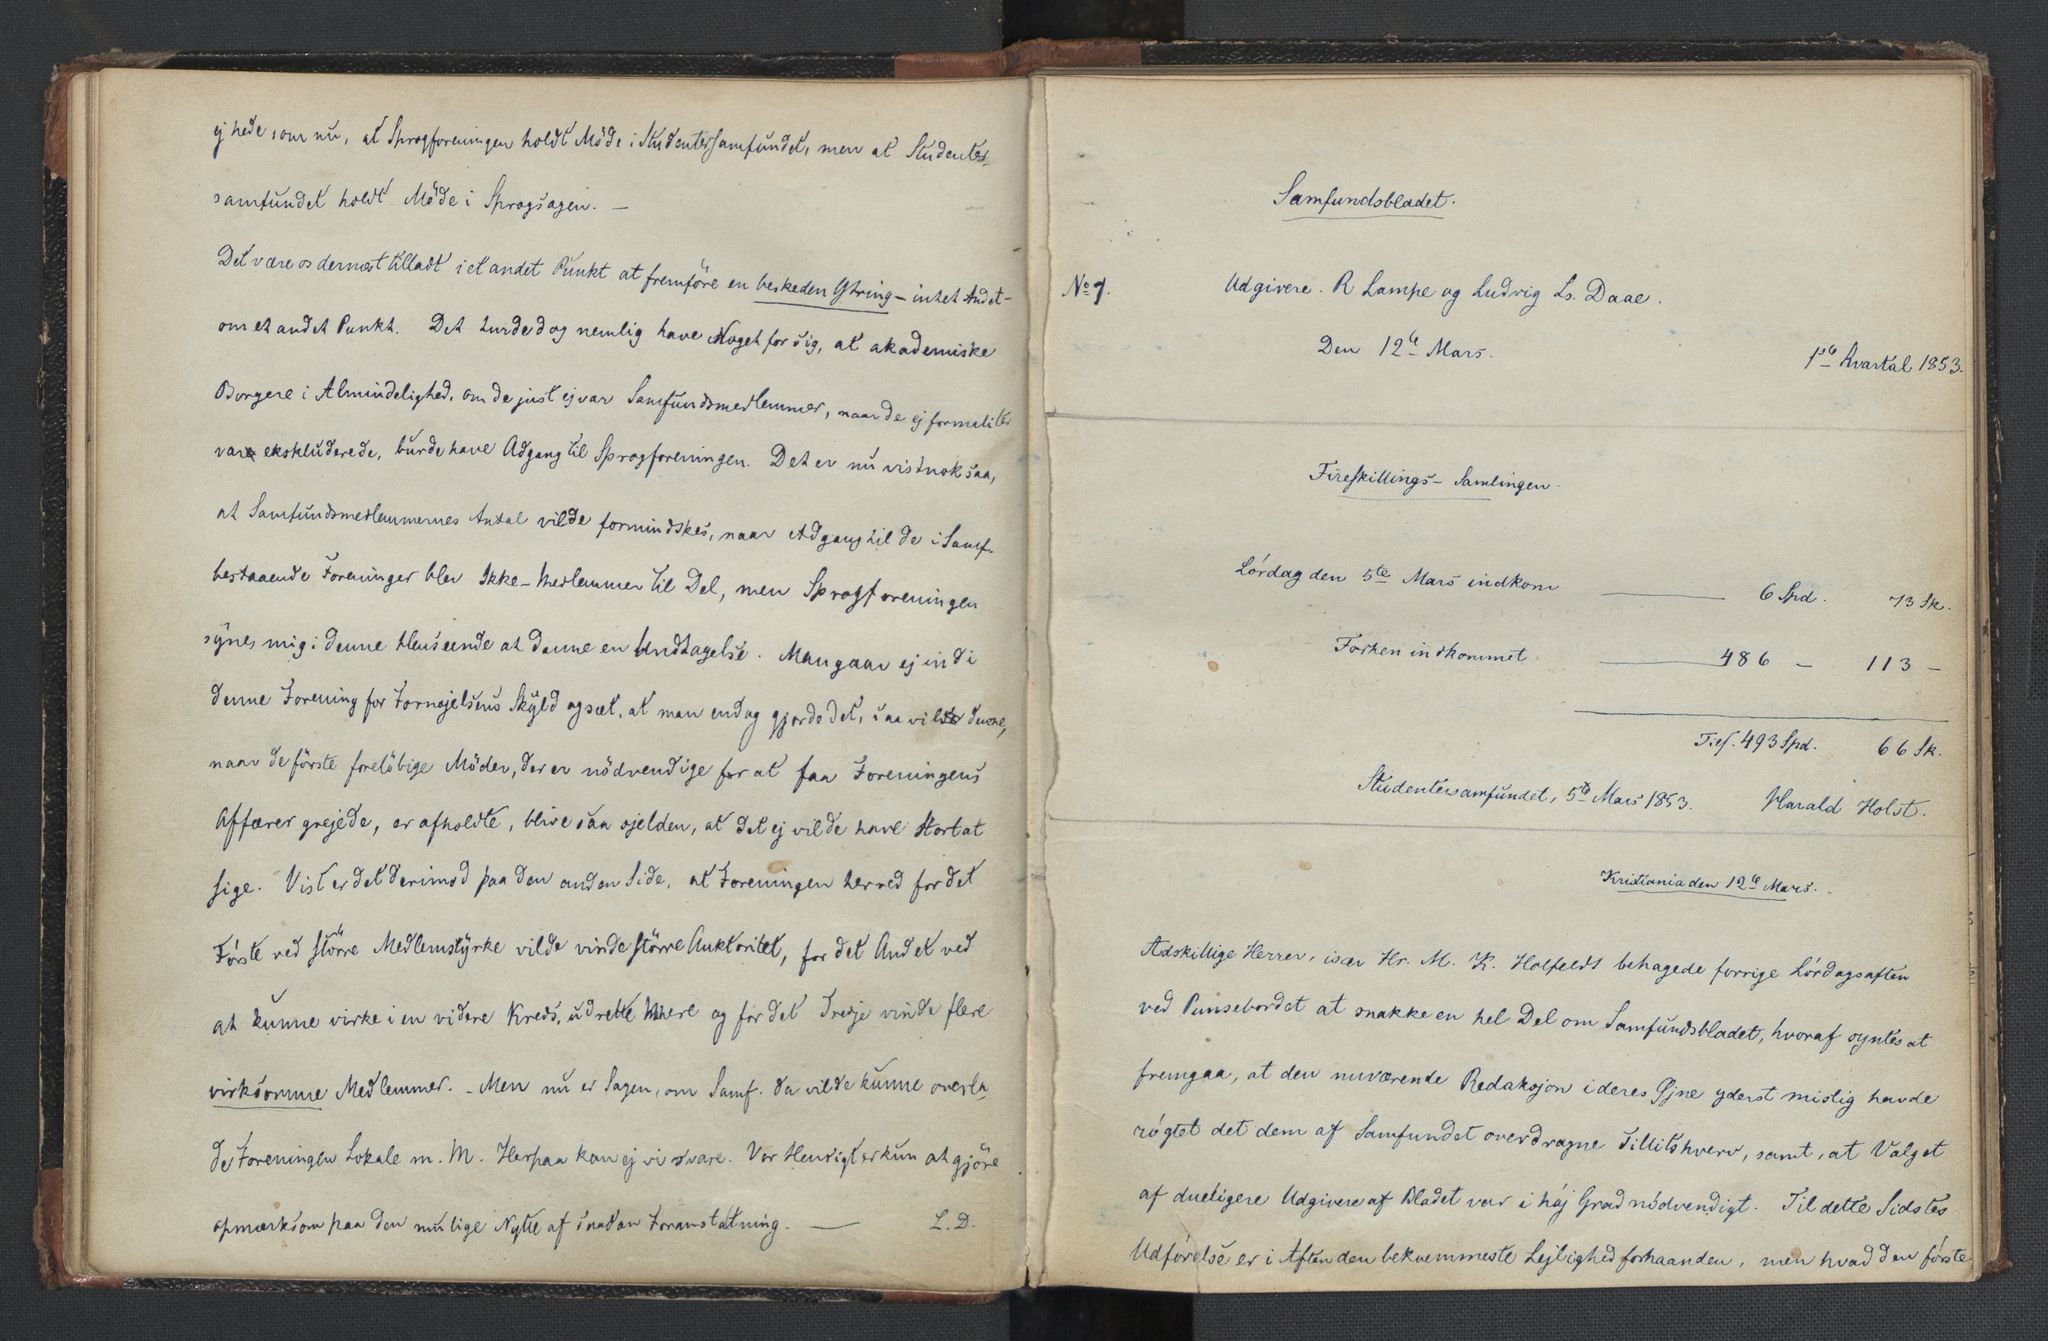 ej hede som nu, at Sprogforeningen holdt Möde i Studentersamfundet, men at Studenter-
samfundet holdt Möde i Sprogsagen. —
Det være os dernæst tilladt i et andet Punkt at fremföre en beskeden Ytring – intet Andet –
om et andet Punkt. Det turde dog nemlig have Noget for sig, at akademiske
Borgere i Almindelighed, om de just ej var Samfundsmedlemmer, naar de ej formaliter
var ekskluderede, burde have Adgang til Sprogforeningen. Det er nu vistnok saa,
at Samfundsmedlemmernes Antal vilde formindskes, naar Adgang til de i Samf.
bestaaende Foreninger blev Ikke-Medlemmer til Del, men Sprogforeningen
synes mig i denne Henseende at danne en Undtagelse. Man gaar ej ind i
denne Forening for Fornøjelsens Skyld og sæt, at man endog gjorde det, saa vil denne,
naar de förste forelöbige Möder, der er nödvendige for at faa Foreningens
Affærer grejede, er afholdte, blive saa sjelden, at det ej vilde have stort at
sige. Vist er det derimod paa den anden Side, at Foreningen herved for det
Förste ved större Medlemstyrke vilde vinde större Auktoritet, for det Andet ved
at kunne virke i en videre Kreds, udrette Mere og for det Tredje vinde flere
virksomme Medlemmer. – Men nu er Sagen, om Samf. da vilde kunne overla-
de Foreningen Lokale m. M. Herpaa kan ej vi svare. Vor Hensigt er kun at gjöre
opmærksom paa den mulige Nytte af saadan Foranstaltning. — L. D.
Samfundsbladet.
No 7. Udgivere. R Lampe og Ludvig Ls. Daae.
Den 12te Mars. 1ste Kvartal 1853.
Fireskillings- Samlingen.
Lördag den 5te Mars indkom — 6 Spd. 73 Sk.
Förhen indkommet — 486 – 113 –
Tils. 493 Spd. 66 Sk.
Studentersamfundet, 5te Mars 1853. Harald Holst.
Kristiania den 12te Mars.
Adskillige Herrer, især Hr. M. K. Holfeldt behagede forrige Lördagsaften
ved Punsebordet at snakke en hel Del om Samfundsbladet, hvoraf syntes at
fremgaa, at den nuværende Redaksjon i deres Øjne yderst mislig havde
rögtet det dem af Samfundet overdragne Tillitshverv, samt, at Valget
af dueligere Udgivere af Bladet var i höj Grad nödvendigt. Til dette Sidstes
Udförelse er i Aften den bekvemmeste Lejlighed forhaanden, men hvad den förste